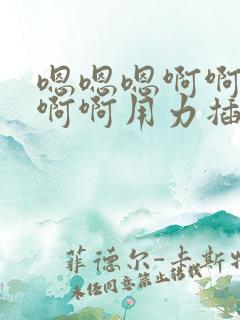 嗯嗯嗯啊啊
啊啊用力插
菲德尔-卡斯特
未经同意禁止转载